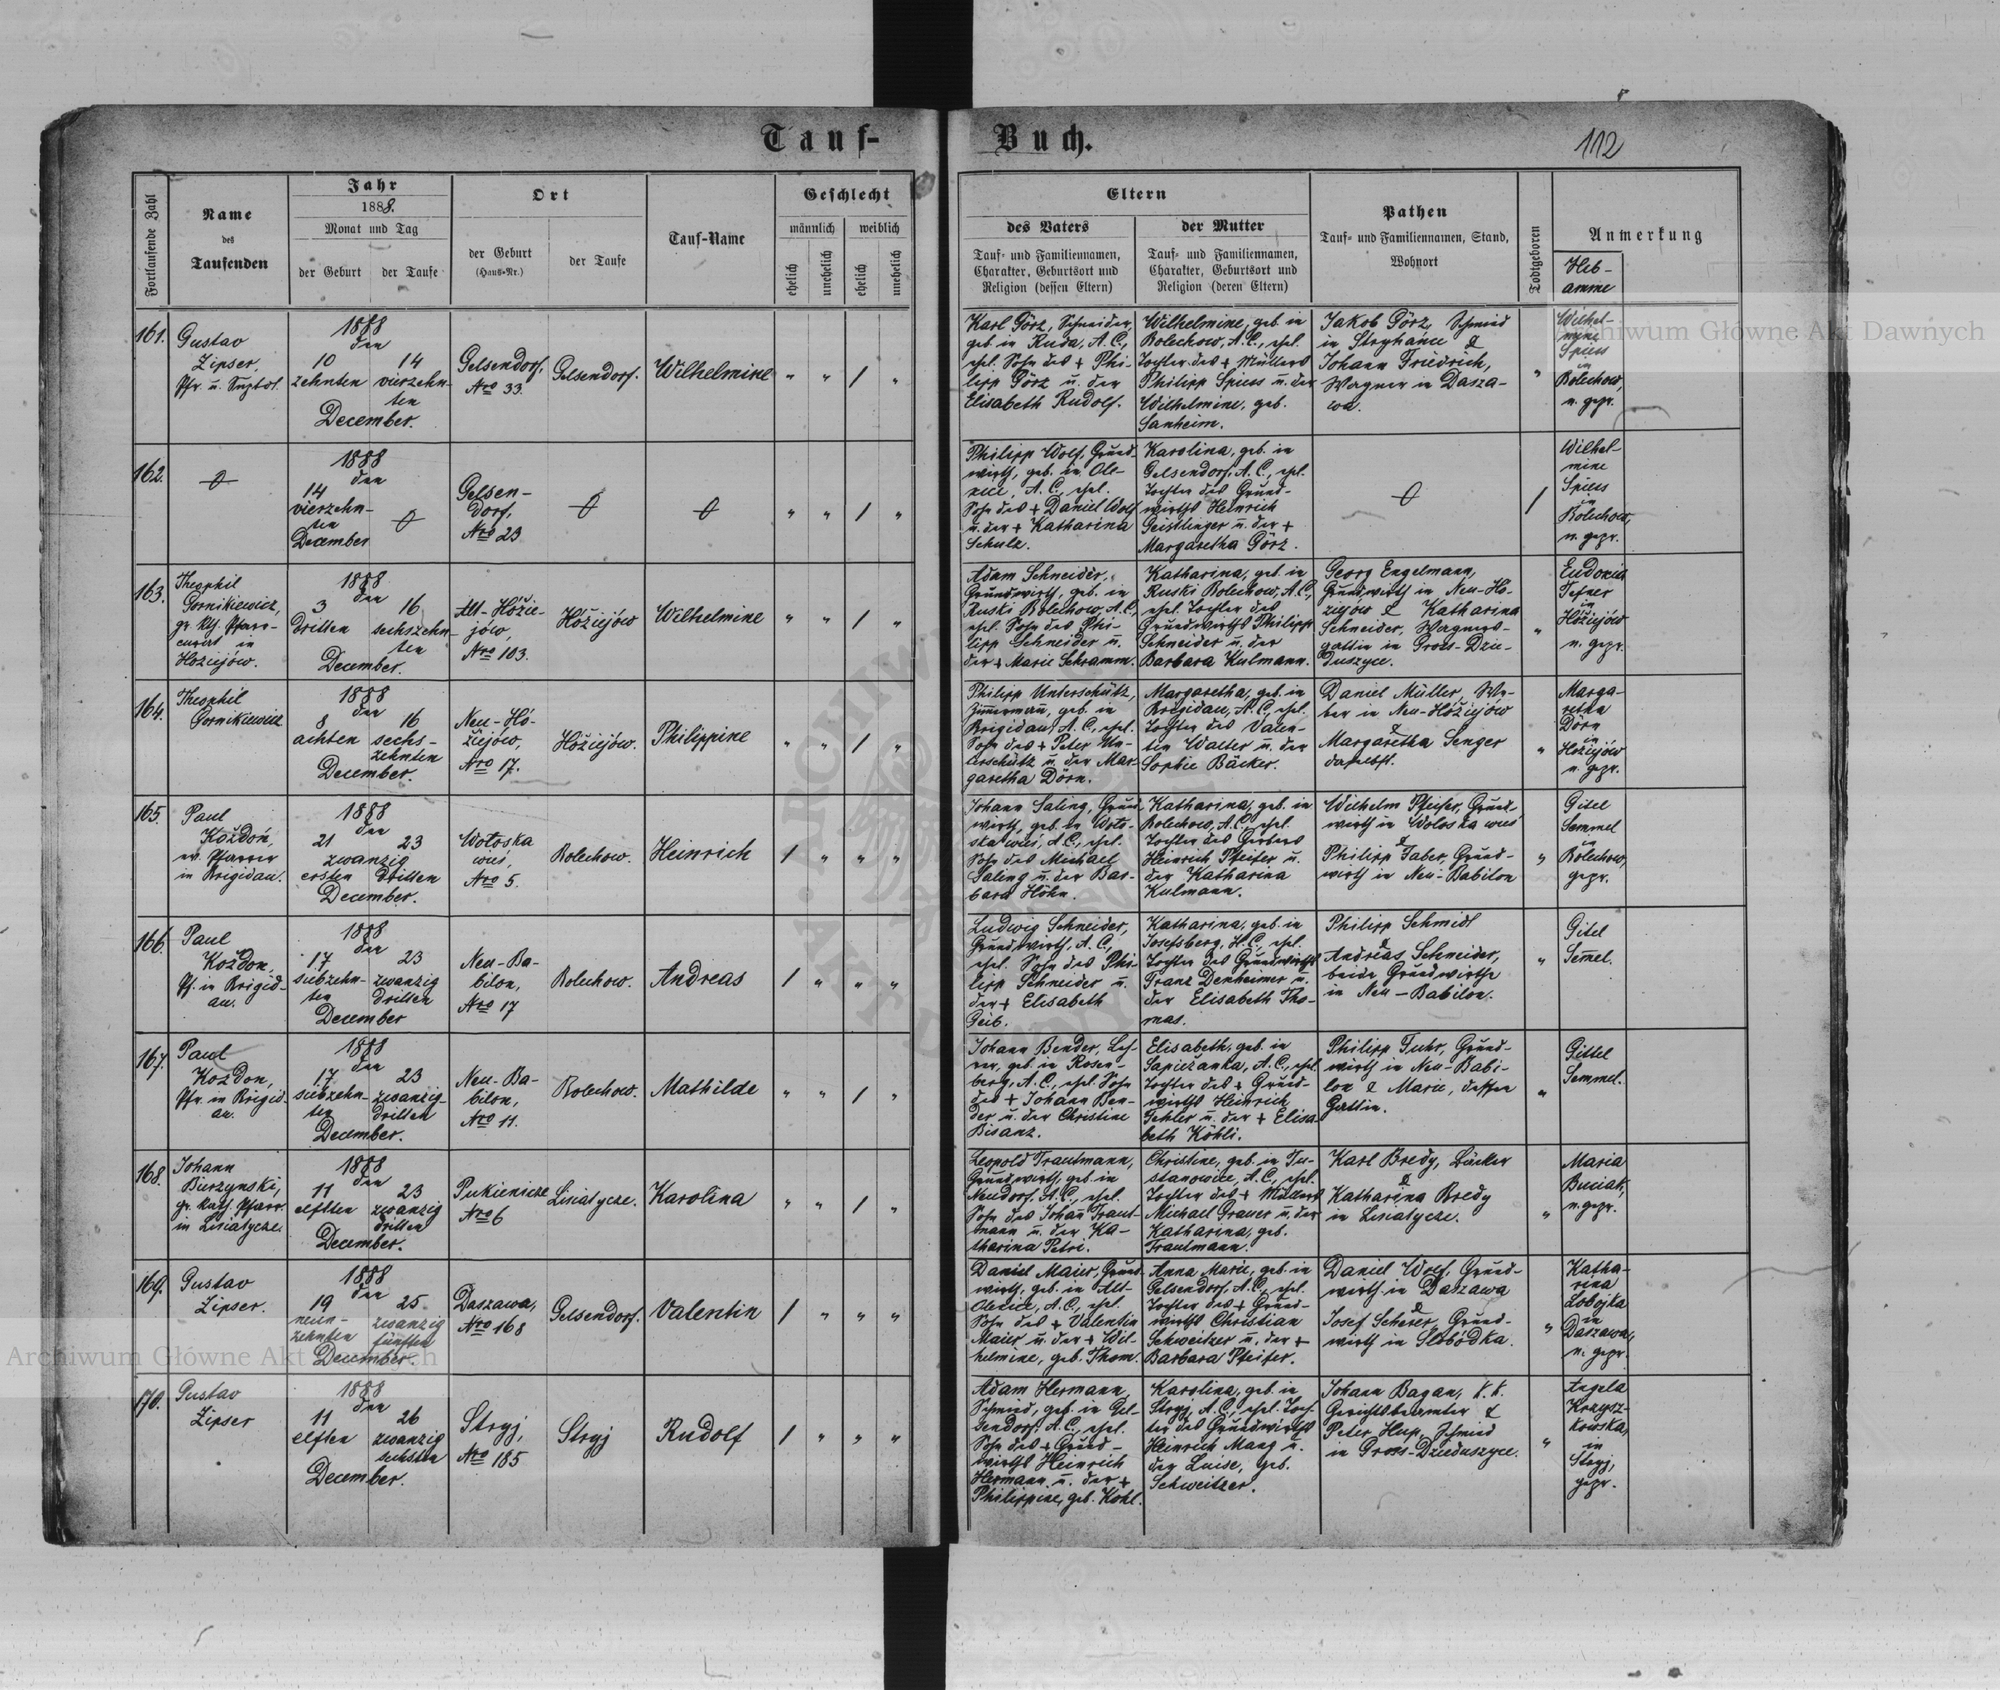 Tauf-
Buch.
112
Fortlaufende Zahl
Name
des
Taufenden
Jahr
1888.
Monat und Tag
der Geburt
der Taufe
Ort
der Geburt
(Haus-Nr.)
der Taufe
Tauf-Name
Geschlecht
männlich
weiblich
ehelich
unehelich
ehelich
unehelich
Eltern
des Vaters
Tauf- und Familiennamen,
Charakter, Geburtsort und
Religion (dessen Eltern)
der Mutter
Tauf- und Familiennamen,
Charakter, Geburtsort und
Religion (deren Eltern)
Pathen
Tauf- und Familiennamen, Stand,
Wohnort
Todtgeboren
Anmerkung
Heb-
amme
161.
Gustav
Zipser,
Pfr. u.
1888
den
10
zehnten
14
vierzehn-
ten
December.
Gelsendorf,
Nro 33.
Gelsendorf.
Wilhelmine
" " / "
Karl Görz, Schneider,
geb. in Ruda, A.C.,
ehel. Sohn des + Phi-
lipp Görz u. der
Elisabeth Rudolf.
Wilhelmine, geb. in
Bolechow, A.C., ehel.
Tochter des + Müllers
Philipp Spiess u. der
Wilhelmine, geb.
Sanheim.
Jakob Görz, Schmied
in Stryhańce &
Johann Friedrich,
Wagner in Dasza-
wa.
"
Wilhel-
mine
Spiess
in
Bolechow,
n. gepr.
162.
1888
den
14
vierzehn-
ten
December
Gelsen-
dorf,
Nro 23
" " / "
Philipp Wolf, Grund-
wirth, geb. in Ole-
xice, A.C., ehel.
Sohn des + Daniel Wolf
u. der + Katharina
Schulz.
Karolina, geb. in
Gelsendorf, A.C., ehel.
Tochter des Grund-
wirths Heinrich
Geistlinger u. der +
Margaretha Görz.
/
Wilhel-
mine
Spiess
in
Bolechow,
n. gepr.
163.
Theophil
Gornikiewicz,
gr. kth. Pfarr-
in
Hoziejów.
1888
den
3
dritten
16
sechszehn-
ten
December.
Alt-Hózie-
jów,
Nro 103.
Hóziejów
Wilhelmine
" " / "
Adam Schneider,
Grundwirth, geb. in
Ruski Bolechow, A.C.,
ehel. Sohn des Phi-
lipp Schneider u.
der + Marie Schramm.
Katharina, geb. in
Ruski Bolechow, A.C.,
ehel. Tochter des
Grundwirths Philipp
Schneider u. der
Barbara Kulmann.
Georg Engelmann,
Grundwirth in Neu-Ho-
ziejów & Katharina
Schneider, Wagners-
gattin in Gross-Dzie-
duszyce.
"
Eudoxia
in
Hóziejów
n. gepr.
164.
Theophil
Gornikiewicz
1888
den
8
achten
16
sechs-
zehnten
December.
Neu-Hó-
ziejów,
Nro 17.
Hóziejów.
Philippine
" " / "
Philipp Unterschütz,
Zimmermann, geb. in
Brigidau, A.C., ehel.
Sohn des + Peter Un-
terschütz u. der Mar-
garetha Dörn.
Margaretha, geb. in
Brigidau, A.C., ehel.
Tochter des Valen-
tin Walter u. der
Sophie Bäcker.
Daniel Müller, We-
ber in Neu-Hóziejów
&
Margaretha Senger
daselbst.
"
Marga-
retha
Dörn
in
Hóziejów
n. gepr.
165.
Paul
Koždoń,
ev. Pfarrer
in Brigidau.
1888
den
21
23
zwanzig
ersten dritten
December.
Wołoska
wieś,
Nro 5.
Bolechow.
Heinrich
/ " " "
Johann Saling, Grund-
wirth, geb. in Woło-
ska wieś, A.C., ehel.
Sohn des Michael
Saling u. der Bar-
bara Höhn.
Katharina, geb. in
Bolechow, A.C., ehel.
Tochter des Gerbers
Heinrich Pfeifer u.
der Katharina
Kulmann.
Wilhelm Pfeifer, Grund-
wirth in Wołoska wieś
&
Philipp Faber, Grund-
wirth in Neu-Babilon
"
Gitel
Semmel
in
Bolechow,
gepr.
166.
Paul
Koždon,
Pf. in Brigid-
au.
1888
den
17
siebzehn-
ten
23
zwanzig
dritten
December
Neu-Ba-
bilon,
Nro 17
Bolechow.
Andreas
/ " " "
Ludwig Schneider,
Grundwirth, A.C.,
ehel. Sohn des Phi-
lipp Schneider u.
der + Elisabeth
Geib.
Katharina, geb. in
Josefsberg, H.C., ehel.
Tochter des Grundwirths
Franz Denheimer u.
der Elisabeth Tho-
mas.
Philipp Schmidt
&
Andreas Schneider,
beide Grundwirthe
in Neu-Babilon.
"
Gitel
Semel.
167.
Paul
Koždon,
Pfr. in Brigid-
au.
1888
den
17
siebzehn-
ten
23
zwanzig-
dritten
December.
Neu-Ba-
bilon,
Nro 11.
Bolechow.
Mathilde
" " / "
Johann Bender, Leh-
rer, geb. in Rosen-
berg, A.C., ehel. Sohn
des + Johann Ben-
der u. der Christine
Bisanz.
Elisabeth, geb. in
Sapiežanka, A.C., ehel.
Tochter des + Grund-
wirths Heinrich
Fehler u. der + Elisa-
beth Köhli.
Philipp Fuhr, Grund-
wirth in Neu-Babi-
lon & Marie, dessen
Gattin.
"
Gittel
Semmel.
168.
Johann
Bierzynski,
gr. kath. Pfarr.
in Lisiatycze.
1888
den
11
elften
23
zwanzig
dritten
December.
Pukienicze
Nro 6
Lisiatycze.
Karolina
" " / "
Leopold Trautmann,
Grundwirth, geb. in
Neudorf, A.C., ehel.
Sohn des Johann Traut-
mann u. der Ka-
tharina Petri.
Christine, geb. in Tu-
stanowice, A.C., ehel.
Tochter des + Müllers
Michael Brauer u. der
Katharina, geb.
Trautmann.
Karl Bredy, Bäcker
&
Katharina Bredy
in Lisiatycze.
"
Maria
Busiak,
n. gepr.
169.
Gustav
Zipser.
1888
den
19
neun-
zehnten
25
zwanzig
fünften
December.
Daszawa,
Nro 168
Gelsendorf.
Valentin
/ " " "
Daniel Maier, Grund-
wirth, geb. in Alt-
Olexice, A.C., ehel.
Sohn des + Valentin
Maier u. der + Wil-
helmine, geb. Thom.
Anna Marie, geb. in
Gelsendorf, A.C., ehel.
Tochter des + Grund-
wirths Christian
Schweitzer u. der +
Barbara Pfeifer.
Daniel Wolf, Grund-
wirth in Daszawa
&
Josef Scherer, Grund-
wirth in Slobódka.
"
Katha-
rina
Lobojka
in
Daszawa,
n. gepr.
170.
Gustav
Zipser
1888
den
11
elften
26
zwanzig
sechsten
December.
Stryj,
Nro 185
Stryj
Rudolf
/ " " "
Adam Hermann,
Schmied, geb. in Gel-
sendorf, A.C., ehel.
Sohn des + Grund-
wirths Heinrich
Hermann u. der +
Philippine, geb. Kohl.
Karolina, geb. in
Stryj, A.C., ehel. Toch-
ter des Grundwirths
Heinrich Maag u.
der Luise, geb.
Schweitzer.
Johann Bagan, k.k.
Gerichtsbeamter &
Peter Hup, Schmied
in Gross-Dzieduszyce.
"
Angela
Krzysz-
kowska,
in
Stryj,
gepr.
Archiwum Główne Akt Dawnych
Archiwum Główne Akt Dawnych